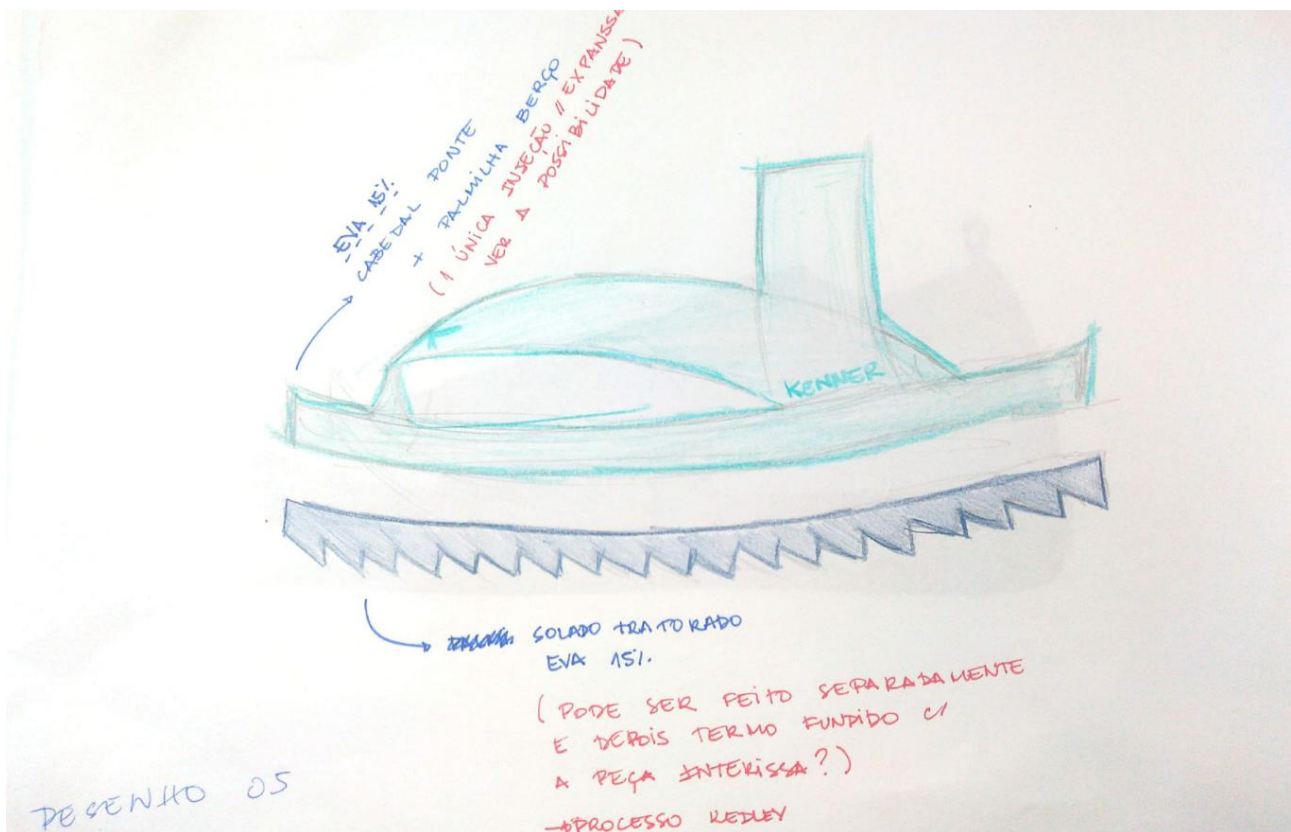 EVA 15%
CABEDAL PONTE
+ PALMILHA BERÇO
(1 ÚNICA INJEÇÃO // EXPANSSÃ
VER A POSSIBILIDADE)
KENNER
SOLADO TRATORADO
EVA 15%
(PODE SER FEITO SEPARADAMENTE
E DEPOIS TERMO FUNDIDO C/
A PEÇA INTERISSA?)
→PROCESSO REDLEY
DESENHO 05